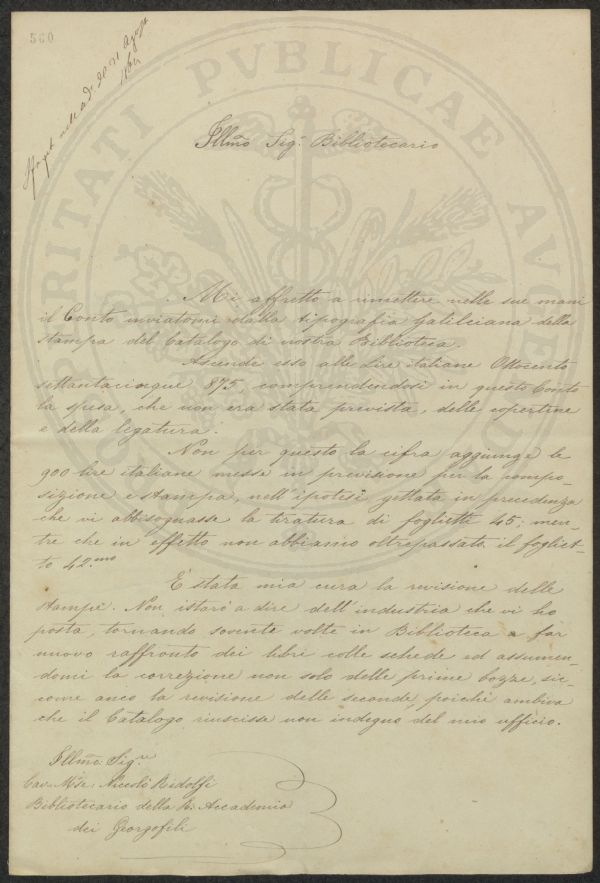 560
agosto
Illmo Sigr. Bibliotecario
PUBLICAE
Mi affretto a rimettere nelle sue mani
il Conto inviatomi dalla tipografia Galileiana della
stampa del Catalogo di nostra Biblioteca.
Ascende esso alle Lire italiane Ottocento
settantacinque 875, comprendendosi in questo Conto
la spesa, che non era stata prevista, delle copertine
e della legatura.
Non per questo la cifra aggiunge le
900 lire italiane messe in previsione per la compo-
sizione e stampa, nell'ipotesi gettata in precedenza
che vi abbisognasse la tiratura di foglietti 45; men-
tre che in effetto non abbiamo oltrepassato il fogliet-
to 42.mo
È stata mia cura la revisione delle
stampe. Non istarò a dire dell'industria che vi ho
posta, tornando sovente volte in Biblioteca a far
nuovo raffronto dei libri colle schede ed assumen-
domi la correzione non solo delle prime bozze, sic-
come anco la revisione delle seconde, poichè ambiva
che il Catalogo riuscisse non indegno del mio ufficio.
Illmo Sigre
Cav. Mse. Niccolò Ridolfi
Bibliotecario della R. Accademia
dei Georgofili